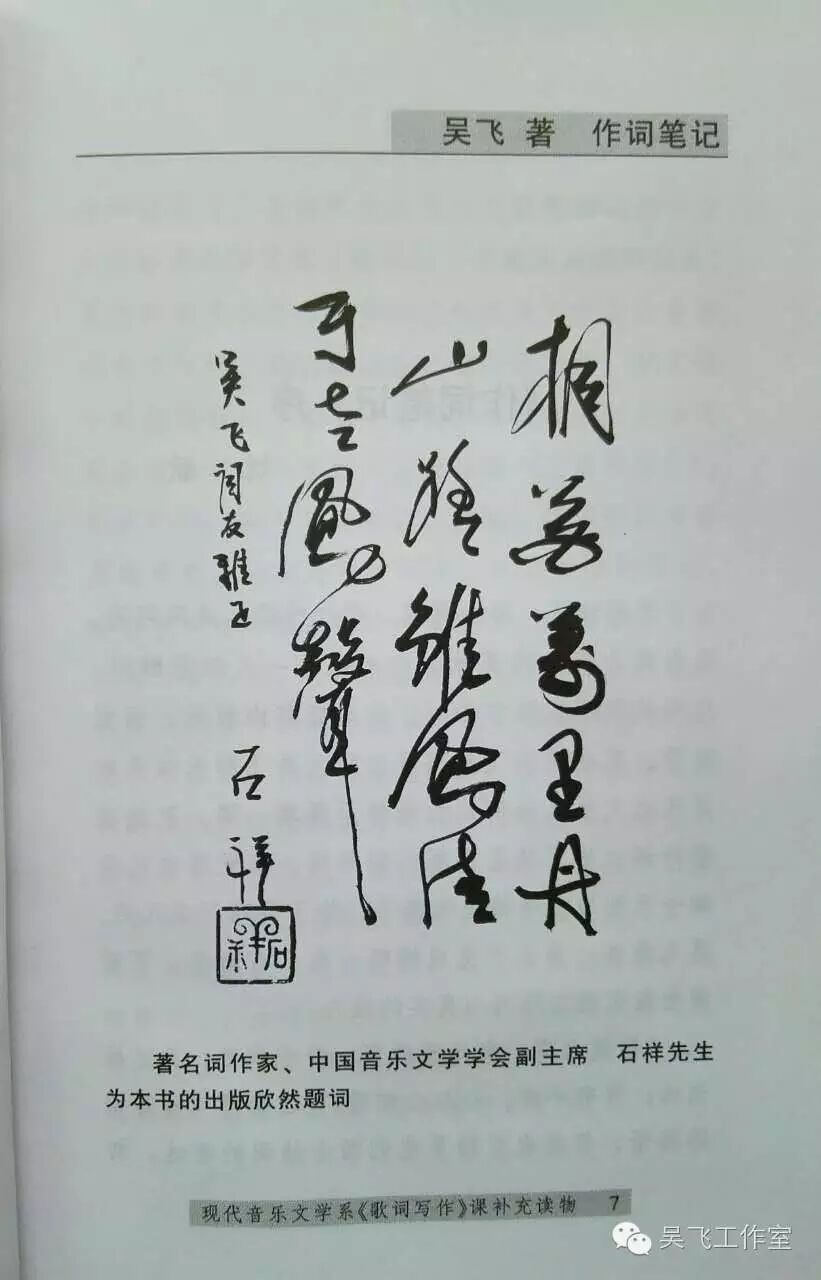 吴飞 著 作词笔记
桐花萬里丹
山路雛鳳清
于老鳳聲
吴飞词友雅正
石祥
石祥
著名词作家、中国音乐文学学会副主席 石祥先生
为本书的出版欣然题词
现代音乐文学系《歌词写作》课补充读物 7
吴飞工作室